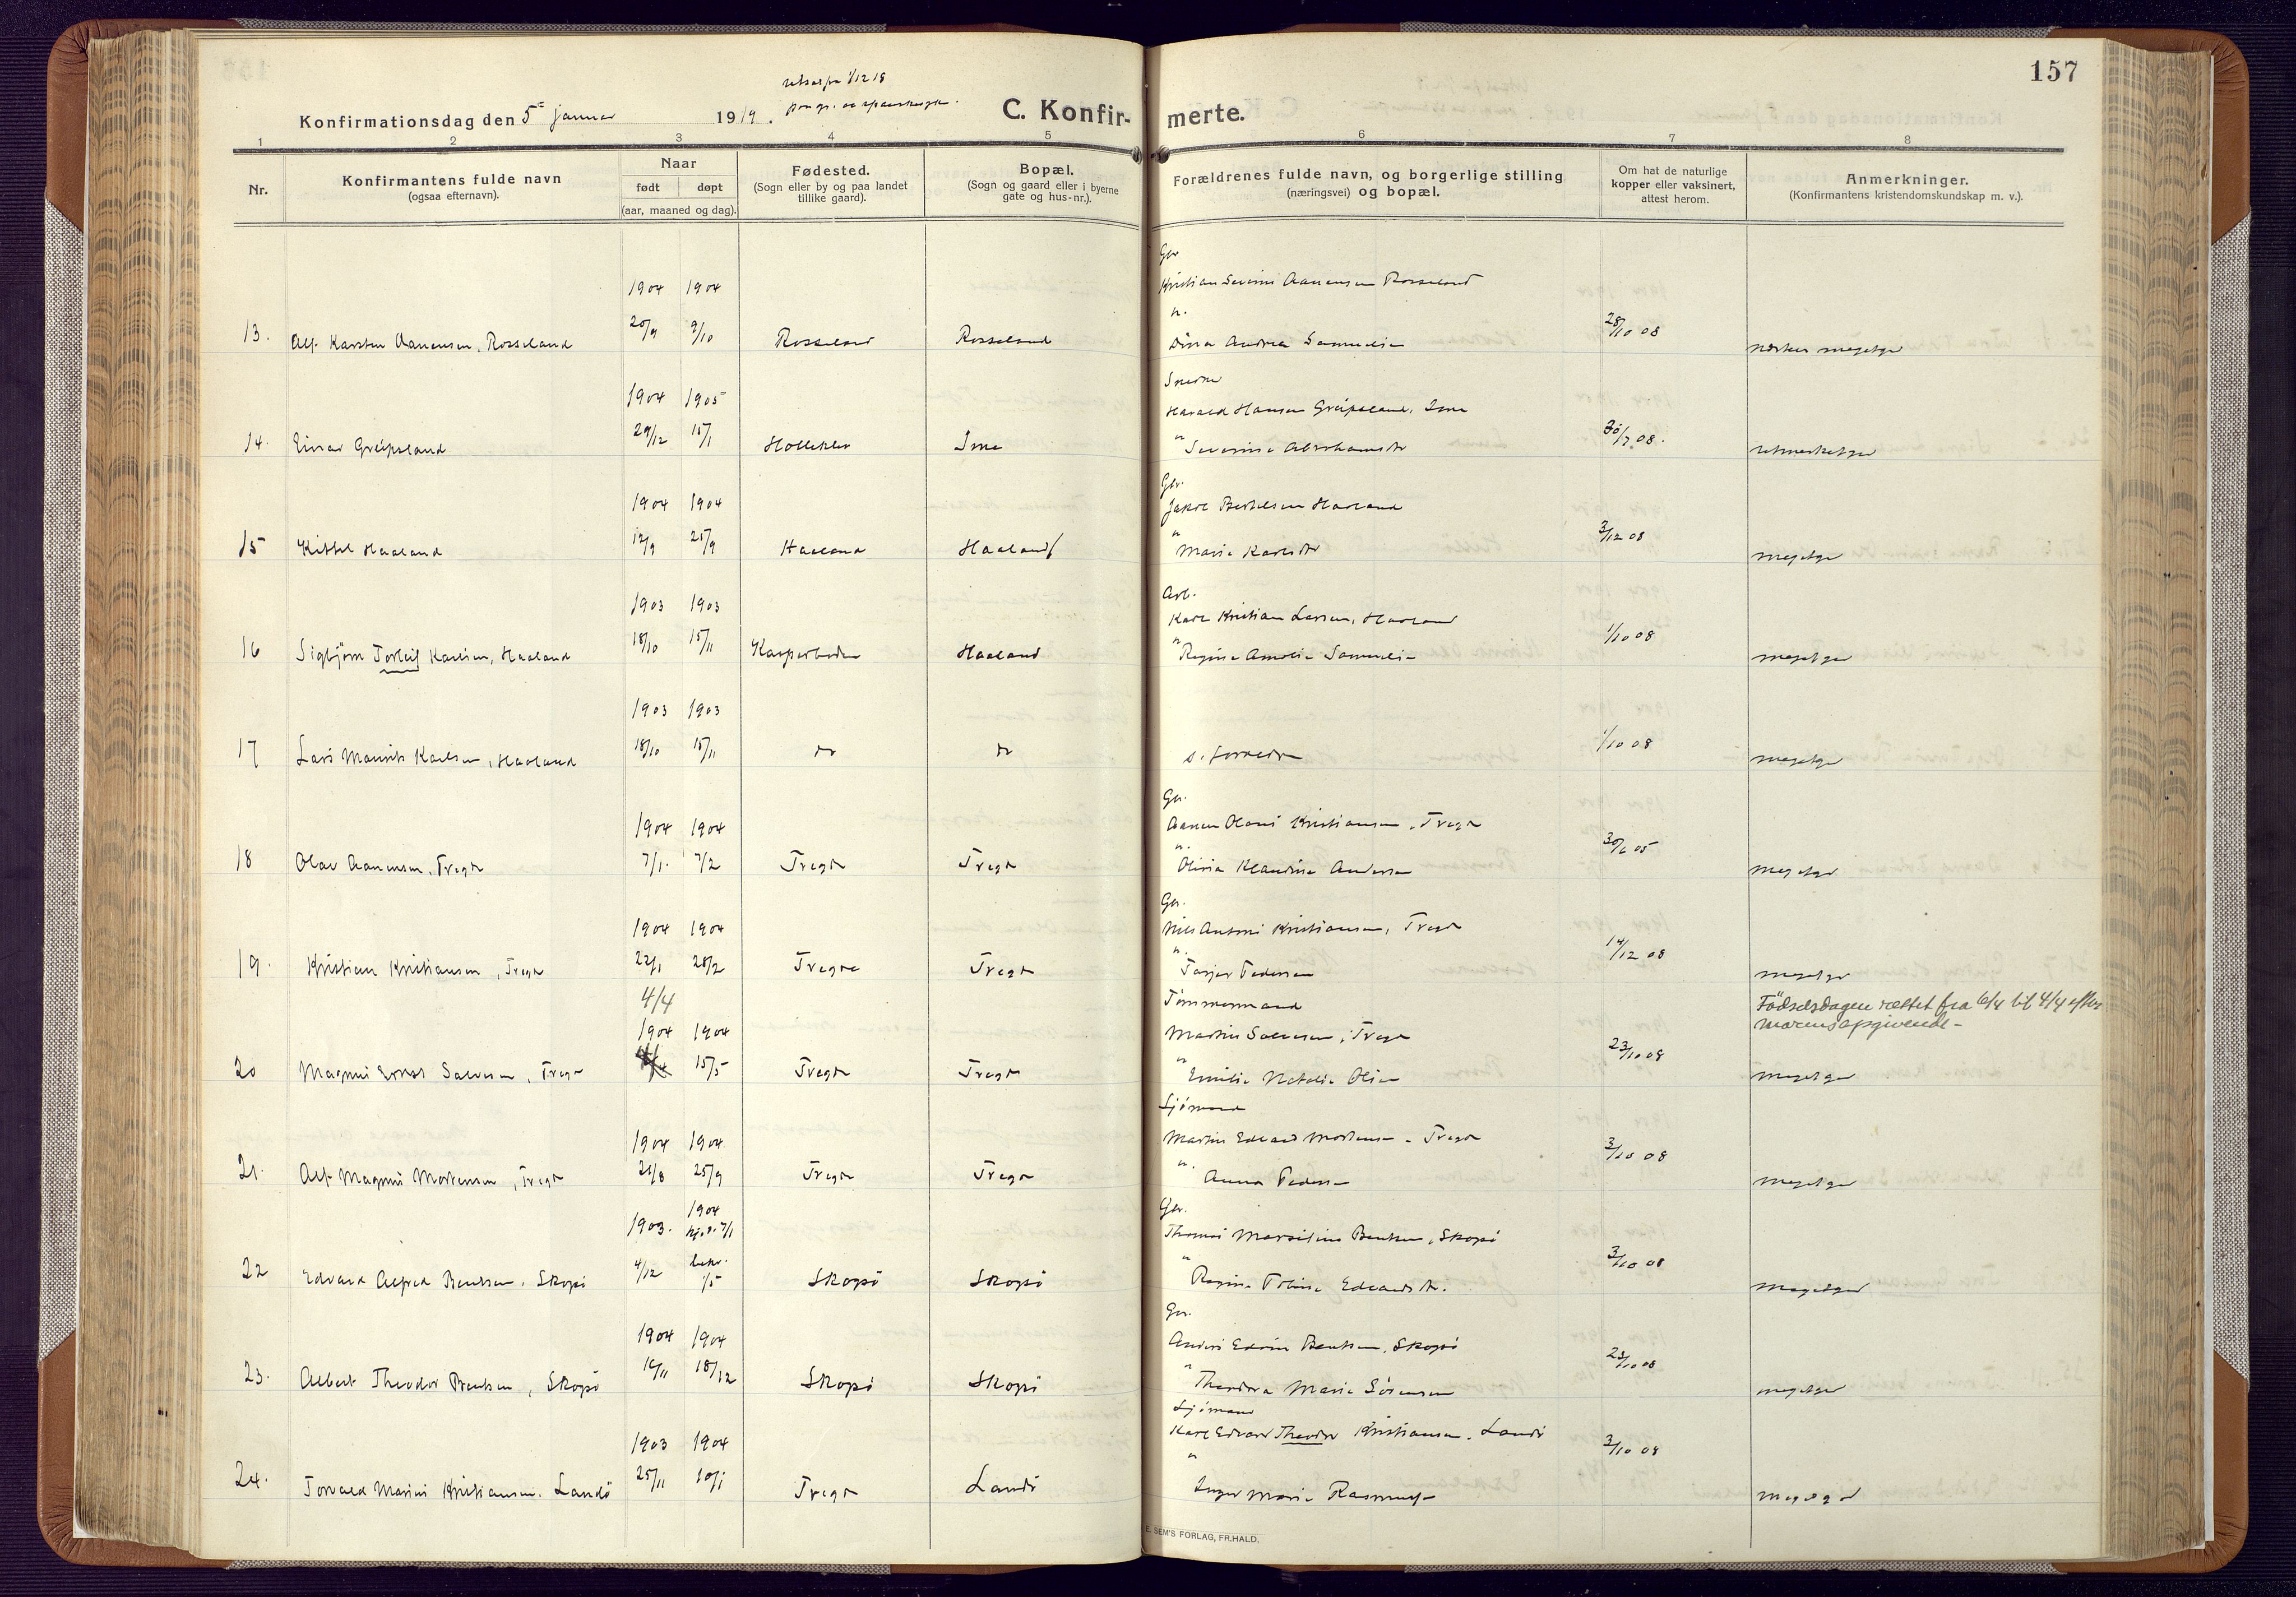 157
Konfirmationsdag den 5 januar 1919.
C. Konfir- merte.
1 2 3 4 5 6 7 8
Nr.
Konfirmantens fulde navn
(ogsaa efternavn).
Naar
født døpt
(aar, maaned og dag).
Fødested.
(Sogn eller by og paa landet
tillike gaard).
Bopæl.
(Sogn og gaard eller i byerne
gate og hus-nr.).
Forældrenes fulde navn, og borgerlige stilling
(næringsvei) og bopæl.
Om hat de naturlige
kopper eller vaksinert,
attest herom.
Anmerkninger.
(Konfirmantens kristendomskundskap m. v.).
Gbr
Kristian Severin Aanensen Rosseland
1904 1904
13. Alf Karsten Aanensen, Rosseland 20/9 9/10 Rosseland Rosseland 28/10 08
Dina Andrea Samuelsen
Smed
1904 1905
Harald Hansen Greipsland, Ime
14. Einar Greipsland 29/12 15/1 Holleklev Ime 30/7 08.
Severine Abrahamsdtr
Gbr.
1904 1904
Jakob Bertelsen Haaland
15 Kittel Haaland 12/9 25/9 Haaland Haaland 3/12 08 megetgr
Maria Karlsdtr
Arb.
1903 1903
Karl Kristian Larsen, Haaland
16 Sigbjørn Torleif Karlsen, Haaland 18/10 15/11 Haaland 1/10 08 megetgr
Regine Amalie Samuelsen
1903 1903
17 Lars Maurits Karlsen, Haaland 18/10 15/11 do do s. forrædre 1/10 08 megetgr
Gbr.
1904 1904
Aanen Olaus Kristiansen, Tregde
18 Olav Aanensen, Tregde 7/1. 7/2 Tregde Tregde 30/6 05 megetgr
Olivia Klaudine Andersen
Gbr.
1904 1904
Nils Antoni Kristiansen, Tregde
19. Kristian Kristiansen, Tregde 22/1 28/2 Tregde Tregde 14/12 08 megetgr
Tasjer Pedersen
4/4
Tømmermand
Fødselsdagen rettet fra 6/4 til 4/4 efter
morens opgivende-
1904 1904
Martin Salvesen, Tregde
20 Magnus Ernst Salvesen, Tregde 15/5 Tregde Tregde 23/10 08 megetgr
Emilie Natalie Olsen
Sjømand
1904 1904
Martin Edvard Mortensen - Tregde
21. Alf Magnus Mortensen, Tregde 21/8 25/9 Tregde Tregde 3/10 08 megetgr
Anna Pedersen
Gbr.
1903. 1904
hj.d. 7/1
Thomas Marselius Bentsen, Skogsø
22 Edvard Alfred Bentsen, Skogsø 4/12 bekr. 1/5 Skogsø Skogsø 3/10 08 megetgr
Regine Tobine Edvardsdtr.
Gbr.
1904 1904
Anders Edvin Bentsen, Skogsø
23. Albert Theodor Bentsen, Skogsø 16/11 18/12 Skogsø Skogsø 23/10 08 megetgr
Theodora Marie Sørensen
Sjømand
1903 1904
Karl Edvard Theodor Kristiansen. Landø
24. Torvald Marius Kristiansen. Landø 25/11 10/1 Tregde Landø 3/10 08 megetgr
Inger Marie Rasmussen
E. SEM'S FORLAG, FR.HALD.